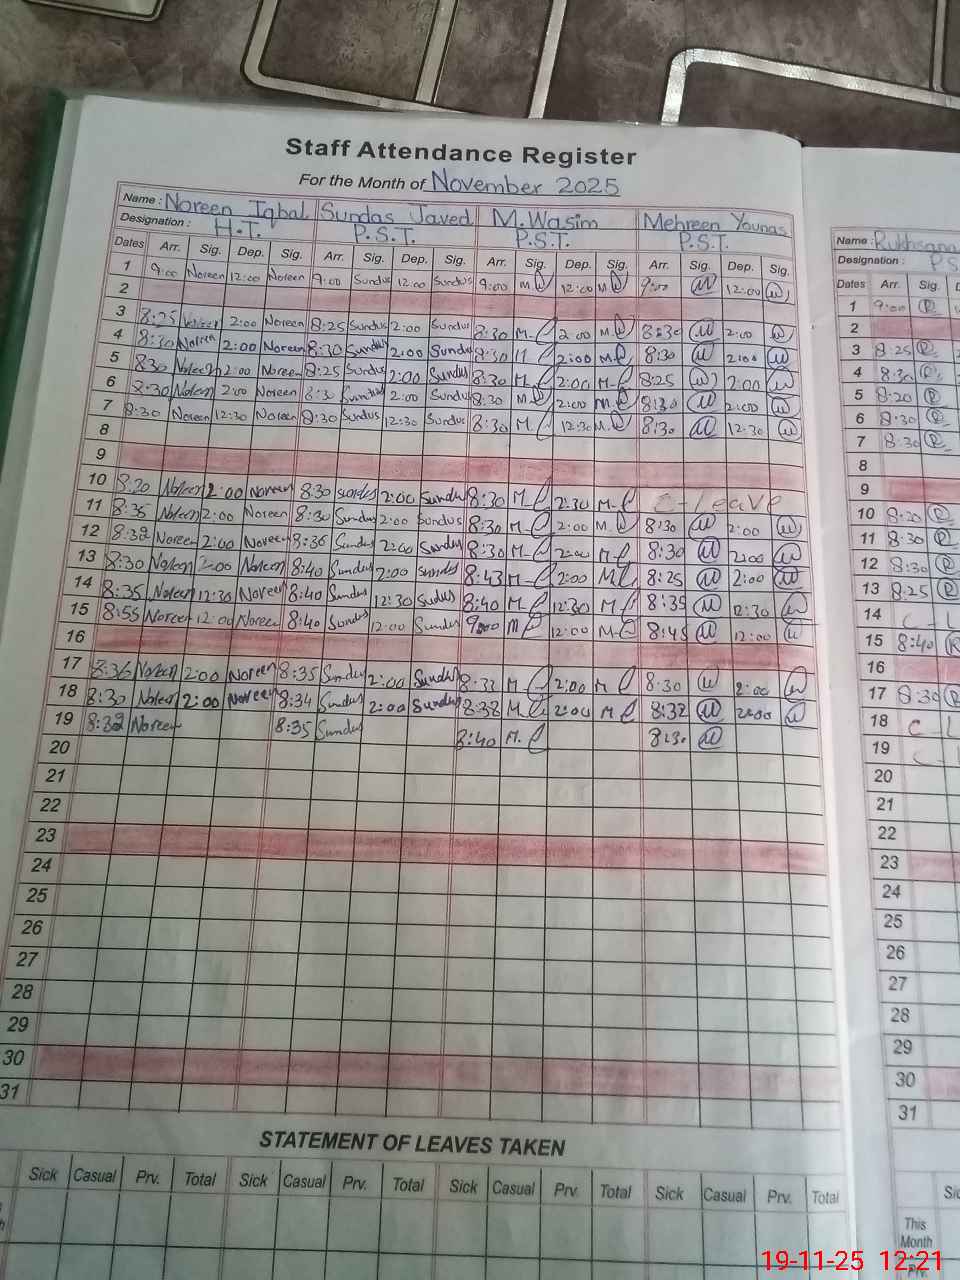 Staff Attendance Register
For the Month of November 2025
Name : Noreen Iqbal Sundas Javed M. Wasim Mehreen Younas
Designation : H.T. P.S.T. P.S.T. P.S.T.
Dates Arr. Sig. Dep. Sig. Arr. Sig. Dep. Sig. Arr. Sig. Dep. Sig. Arr. Sig. Dep. Sig.
1 9:00 Noreen 12:00 Noreen 9:00 Sundus 12:00 Sundus 9:00 M. 12:00 M. 9:00 12:00
2
3 8:25 Noreen 2:00 Noreen 8:25 Sundus 2:00 Sundus 8:30 M. 2:00 M. 8:30 2:00
4 8:30 Noreen 2:00 Noreen 8:30 Sundus 2:00 Sundus 8:30 M. 2:00 M. 8:30 2:00
5 8:30 Noreen 2:00 Noreen 8:25 Sundus 2:00 Sundus 8:30 M. 2:00 M. 8:25 2:00
6 8:30 Noreen 2:00 Noreen 8:30 Sundus 2:00 Sundus 8:30 M. 2:00 M. 8:30 2:00
7 8:30 Noreen 12:30 Noreen 8:30 Sundus 12:30 Sundus 8:30 M. 12:30 M. 8:30 12:30
8
9
10 8:20 Noreen 2:00 Noreen 8:30 Sundus 2:00 Sundus 8:30 M. 2:30 M. C-Leave
11 8:35 Noreen 2:00 Noreen 8:30 Sundus 2:00 Sundus 8:30 M. 2:00 M. 8:30 2:00
12 8:32 Noreen 2:00 Noreen 8:36 Sundus 2:00 Sundus 8:30 M. 2:00 M. 8:30 2:00
13 8:30 Noreen 2:00 Noreen 8:40 Sundus 2:00 Sundus 8:43 M. 2:00 M. 8:25 2:00
14 8:35 Noreen 12:30 Noreen 8:40 Sundus 12:30 Sudus 8:40 M. 12:30 M. 8:35 12:30
15 8:55 Noreen 12:00 Noreen 8:40 Sundus 12:00 Sundus 9:00 M. 12:00 M. 8:45 12:00
16
17 8:36 Noreen 2:00 Noreen 8:35 Sundus 2:00 Sundus 8:33 M. 2:00 M. 8:30 2:00
18 8:30 Noreen 2:00 Noreen 8:34 Sundus 2:00 Sundus 8:38 M. 2:00 M. 8:32 2:00
19 8:32 Noreen 8:35 Sundus 8:40 M. 8:30
20
21
22
23
24
25
26
27
28
29
30
31
STATEMENT OF LEAVES TAKEN
Sick Casual Prv. Total Sick Casual Prv. Total Sick Casual Prv. Total Sick Casual Prv. Total
Name : Rukhsana
Designation : PS
Dates Arr. Sig.
1 9:00 R
2
3 8:25 R
4 8:30 R
5 8:20 R
6 8:30 R
7 8:30 R
8
9
10 8:20 R
11 8:30 R
12 8:30 R
13 8:25 R
14 C-L
15 8:40 R
16
17 8:30 R
18 C-L
19 C-L
20
21
22
23
24
25
26
27
28
29
30
31
This
Month
Prv.
19-11-25 12:21